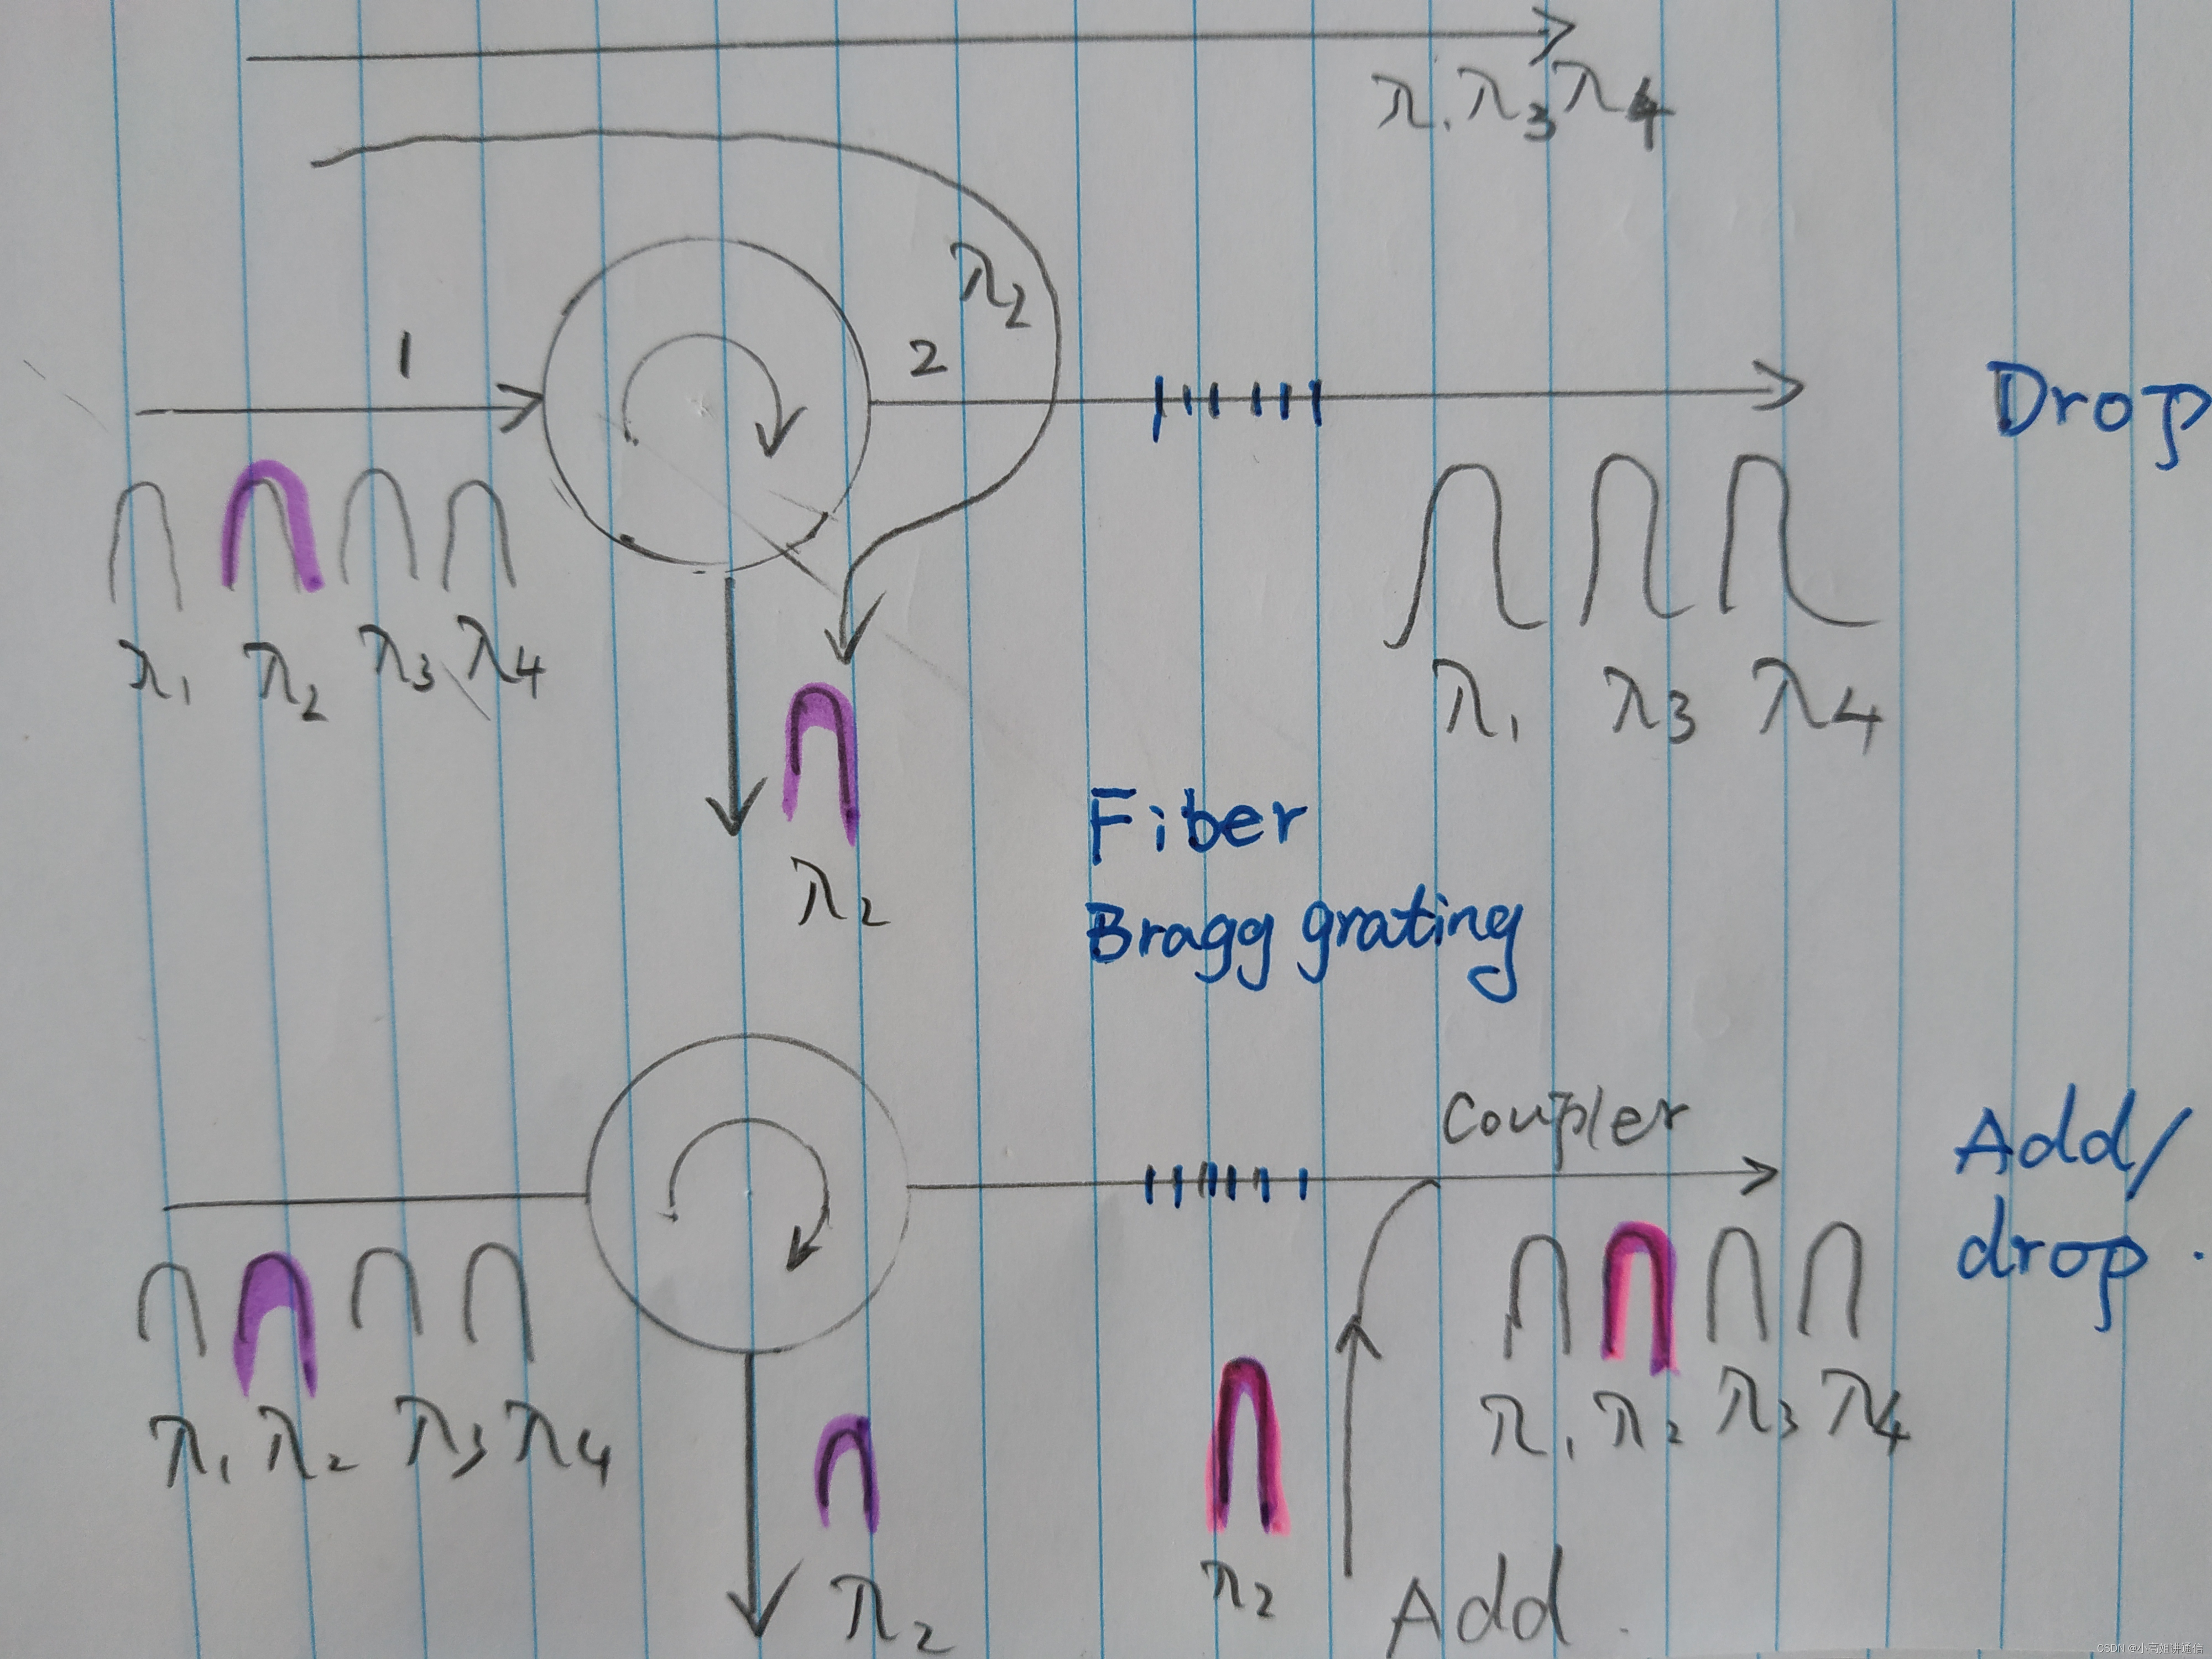 λ1 λ3 λ4
λ2
1
2
Drop
λ1 λ2 λ3 λ4
λ1 λ3 λ4
λ2
Fiber
Bragg grating
Coupler
Add/
drop.
λ1 λ2 λ3 λ4
λ1 λ2 λ3 λ4
λ2
λ2
Add.
CSDN @小高姐讲通信